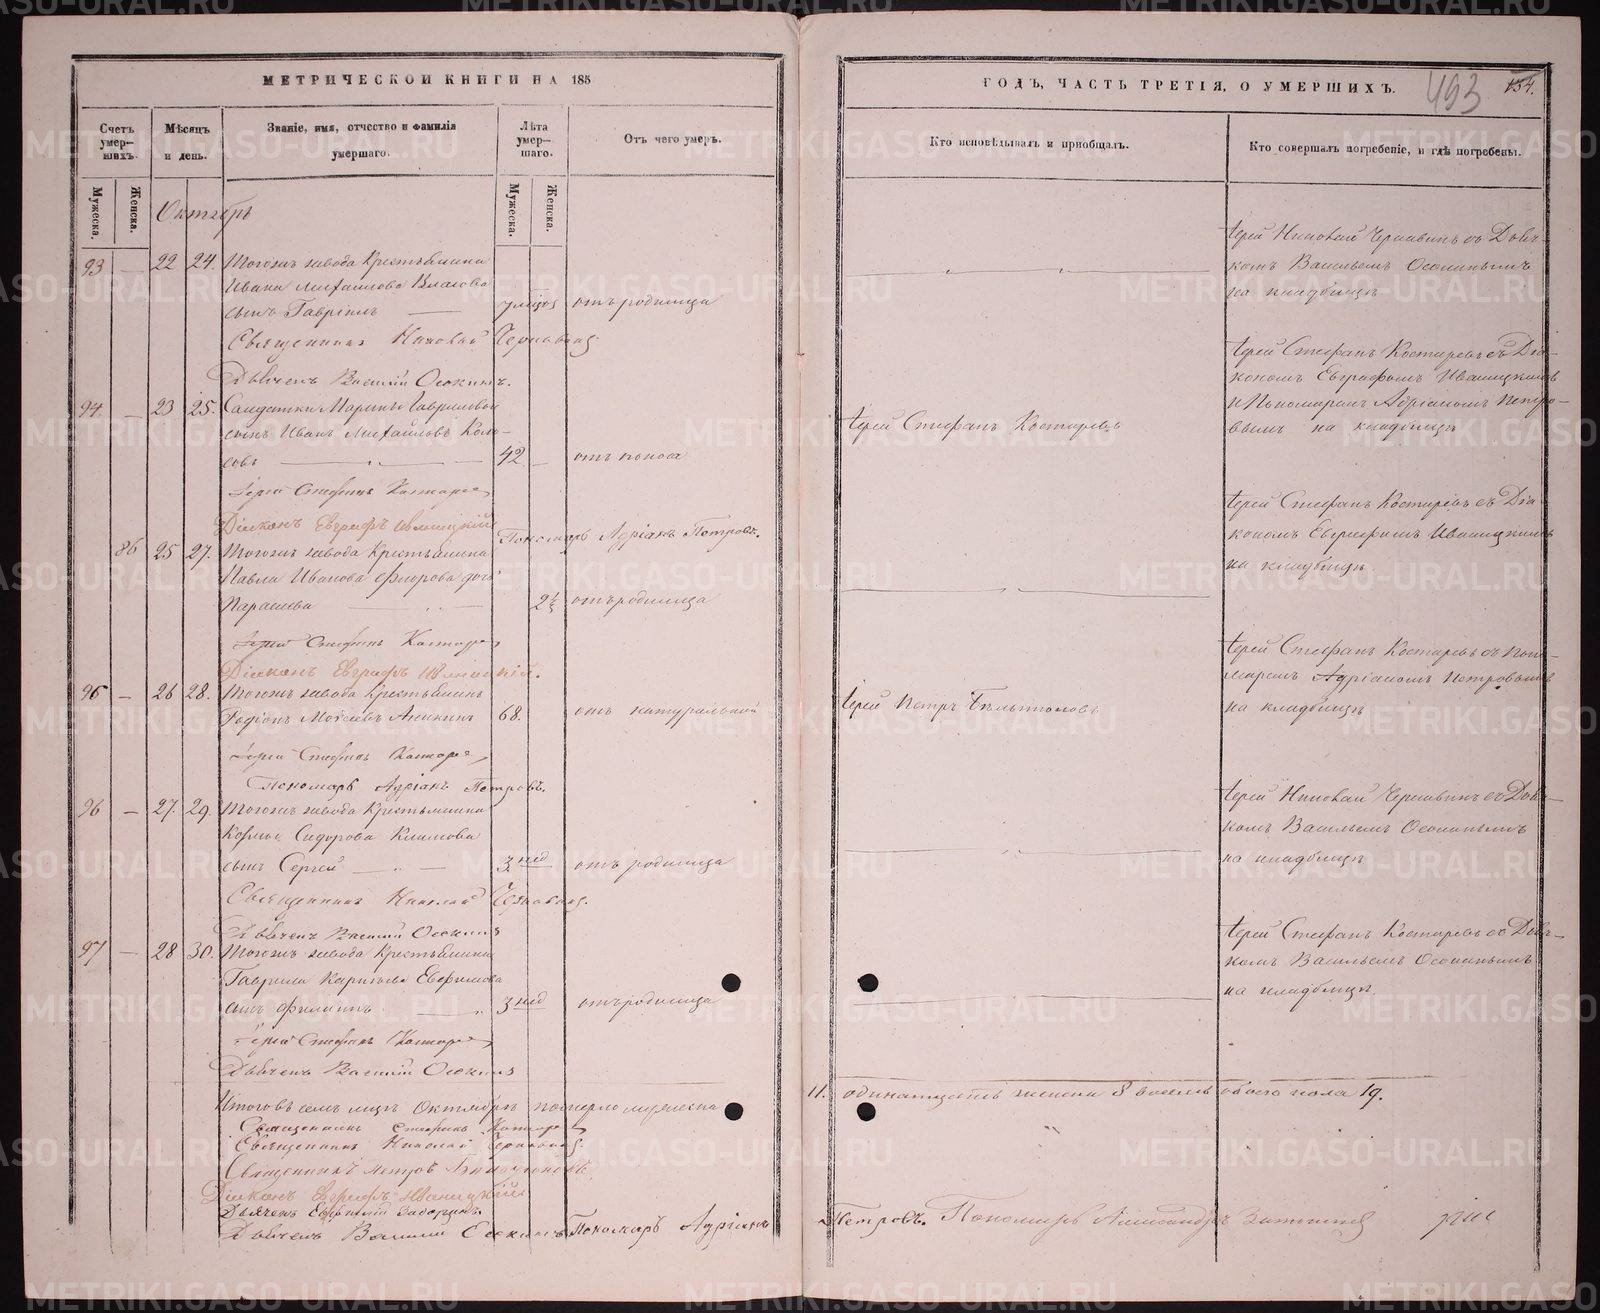 МЕТРИЧЕСКОЙ КНИГИ НА 185
ГОДЪ, ЧАСТЬ ТРЕТІЯ, О УМЕРШИХЪ.
493
134.
Счетъ умер-шихъ.
Мѣсяцъ и день.
Званіе, имя, отчество и фамилія умершаго.
Лѣта умер-шаго.
Отъ чего умеръ.
Кто исповѣдывалъ и пріобщалъ.
Кто совершалъ погребеніе, и гдѣ погребены.
Мужеска.
Женска.
Мужеска.
Женска.
Октябрь
93 — 22 24. Тогожъ завода Крестьянина
Ивана Михайлова Власова
сынъ Гавріилъ — отъ родимца
Священникъ Николай Чернавинъ
Дьячекъ Василій Осокинъ.
Іерей Николай Чернавинъ съ Дьяч-
комъ Васильемъ Осокинымъ
на кладбищѣ
94. — 23 25. Солдатки Марины Гавриловой
сынъ Иванъ Михайловъ Коло-
совъ — 42 — отъ поноса
Іерей Стефанъ Костаревъ
Діаконъ Евграфъ Иваницкій
Пономарь Адріанъ Петровъ.
Іерей Стефанъ Костаревъ
Іерей Стефанъ Костаревъ съ Діа-
кономъ Евграфомъ Иваницкимъ
и Пономаремъ Адріаномъ Петро-
вымъ на кладбищѣ
86 25 27. Тогожъ завода Крестьянина
Павла Иванова Флорова дочь
Параскева — 2½ отъ родимца
Іерей Стефанъ Костаревъ
Діаконъ Евграфъ Иваницкій.
Іерей Стефанъ Костаревъ съ Діа-
кономъ Евграфомъ Иваницкимъ
на кладбищѣ.
95 — 26 28. Тогожъ завода Крестьянинъ
Родіонъ Моисеевъ Аникинъ 68. отъ натуральной
Іерей Стефанъ Костаревъ
Пономарь Адріанъ Петровъ.
Іерей Петръ Бѣльтюковъ
Іерей Стефанъ Костаревъ съ Поно-
маремъ Адріаномъ Петровымъ
на кладбищѣ
96 — 27. 29. Тогожъ завода Крестьянина
Козмы Сидорова Климова
сынъ Сергей — 3 нед отъ родимца
Священникъ Николай Чернавинъ.
Дьячекъ Василій Осокинъ
Іерей Николай Чернавинъ съ Дьяч-
комъ Васильемъ Осокинымъ
на кладбищѣ
97 — 28 30. Тогожъ завода Крестьянина
Гаврила Карпова Евфимова
сынъ Филиппъ. 3 нед отъ родимца
Іерей Стефанъ Костаревъ
Дьячекъ Василій Осокинъ
Іерей Стефанъ Костаревъ съ Дьяч-
комъ Васильемъ Осокинымъ
на кладбищѣ.
Итого въ семъ мцѣ Октябрѣ померло мужеска
11. одинадцать женска 8 восемь обоего пола 19.
Священникъ Стефанъ Костаревъ
Священникъ Николай Чернавинъ.
Священникъ Петръ Бѣльтюковъ.
Діаконъ Евграфъ Иваницкій
Дьячекъ Евфимій
Дьячекъ Василій Осокинъ Пономарь Адріанъ
Петровъ. Пономарь Александръ
METRIKI.GASO-URAL.RU